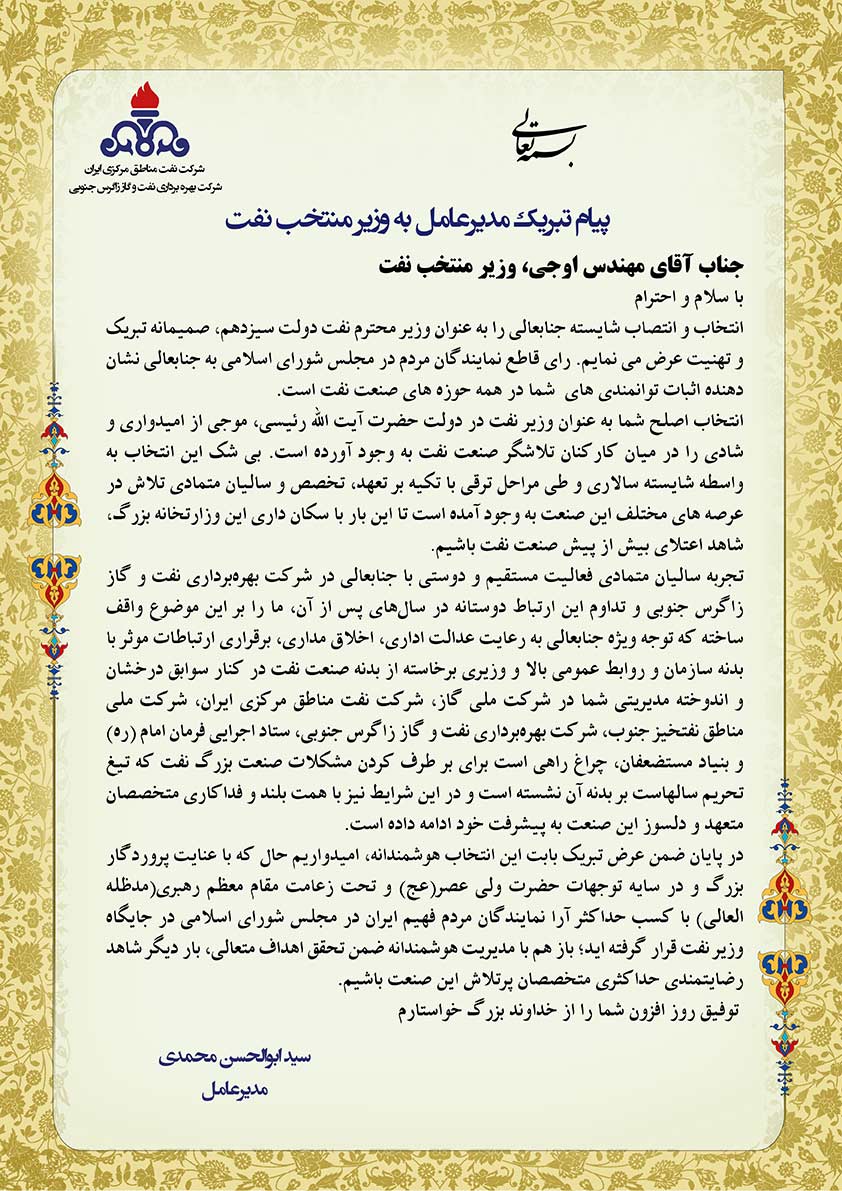 بسمه تعالی
شرکت نفت مناطق مرکزی ایران
شرکت بهره برداری نفت و گاز زاگرس جنوبی
پیام تبریک مدیرعامل به وزیر منتخب نفت
جناب آقای مهندس اوجی، وزیر منتخب نفت
با سلام و احترام
انتخاب و انتصاب شایسته جنابعالی را به عنوان وزیر محترم نفت دولت سیزدهم، صمیمانه تبریک
و تهنیت عرض می نمایم. رای قاطع نمایندگان مردم در مجلس شورای اسلامی به جنابعالی نشان
دهنده اثبات توانمندی های شما در همه حوزه های صنعت نفت است.
انتخاب اصلح شما به عنوان وزیر نفت در دولت حضرت آیت الله رئیسی، موجی از امیدواری و
شادی را در میان کارکنان تلاشگر صنعت نفت به وجود آورده است. بی شک این انتخاب به
واسطه شایسته سالاری و طی مراحل ترقی با تکیه بر تعهد، تخصص و سالیان متمادی تلاش در
عرصه های مختلف این صنعت به وجود آمده است تا این بار با سکان داری این وزارتخانه بزرگ،
شاهد اعتلای بیش از پیش صنعت نفت باشیم.
تجربه سالیان متمادی فعالیت مستقیم و دوستی با جنابعالی در شرکت بهره‌برداری نفت و گاز
زاگرس جنوبی و تداوم این ارتباط دوستانه در سال‌های پس از آن، ما را بر این موضوع واقف
ساخته که توجه ویژه جنابعالی به رعایت عدالت اداری، اخلاق مداری، برقراری ارتباطات موثر با
بدنه سازمان و روابط عمومی بالا و وزیری برخاسته از بدنه صنعت نفت در کنار سوابق درخشان
و اندوخته مدیریتی شما در شرکت ملی گاز، شرکت نفت مناطق مرکزی ایران، شرکت ملی
مناطق نفتخیز جنوب، شرکت بهره‌برداری نفت و گاز زاگرس جنوبی، ستاد اجرایی فرمان امام (ره)
و بنیاد مستضعفان، چراغ راهی است برای بر طرف کردن مشکلات صنعت بزرگ نفت که تیغ
تحریم سالهاست بر بدنه آن نشسته است و در این شرایط نیز با همت بلند و فداکاری متخصصان
متعهد و دلسوز این صنعت به پیشرفت خود ادامه داده است.
در پایان ضمن عرض تبریک بابت این انتخاب هوشمندانه، امیدواریم حال که با عنایت پروردگار
بزرگ و در سایه توجهات حضرت ولی عصر(عج) و تحت زعامت مقام معظم رهبری(مدظله
العالی) با کسب حداکثر آرا نمایندگان مردم فهیم ایران در مجلس شورای اسلامی در جایگاه
وزیر نفت قرار گرفته اید؛ باز هم با مدیریت هوشمندانه ضمن تحقق اهداف متعالی، بار دیگر شاهد
رضایتمندی حداکثری متخصصان پرتلاش این صنعت باشیم.
توفیق روز افزون شما را از خداوند بزرگ خواستارم
سید ابوالحسن محمدی
مدیرعامل